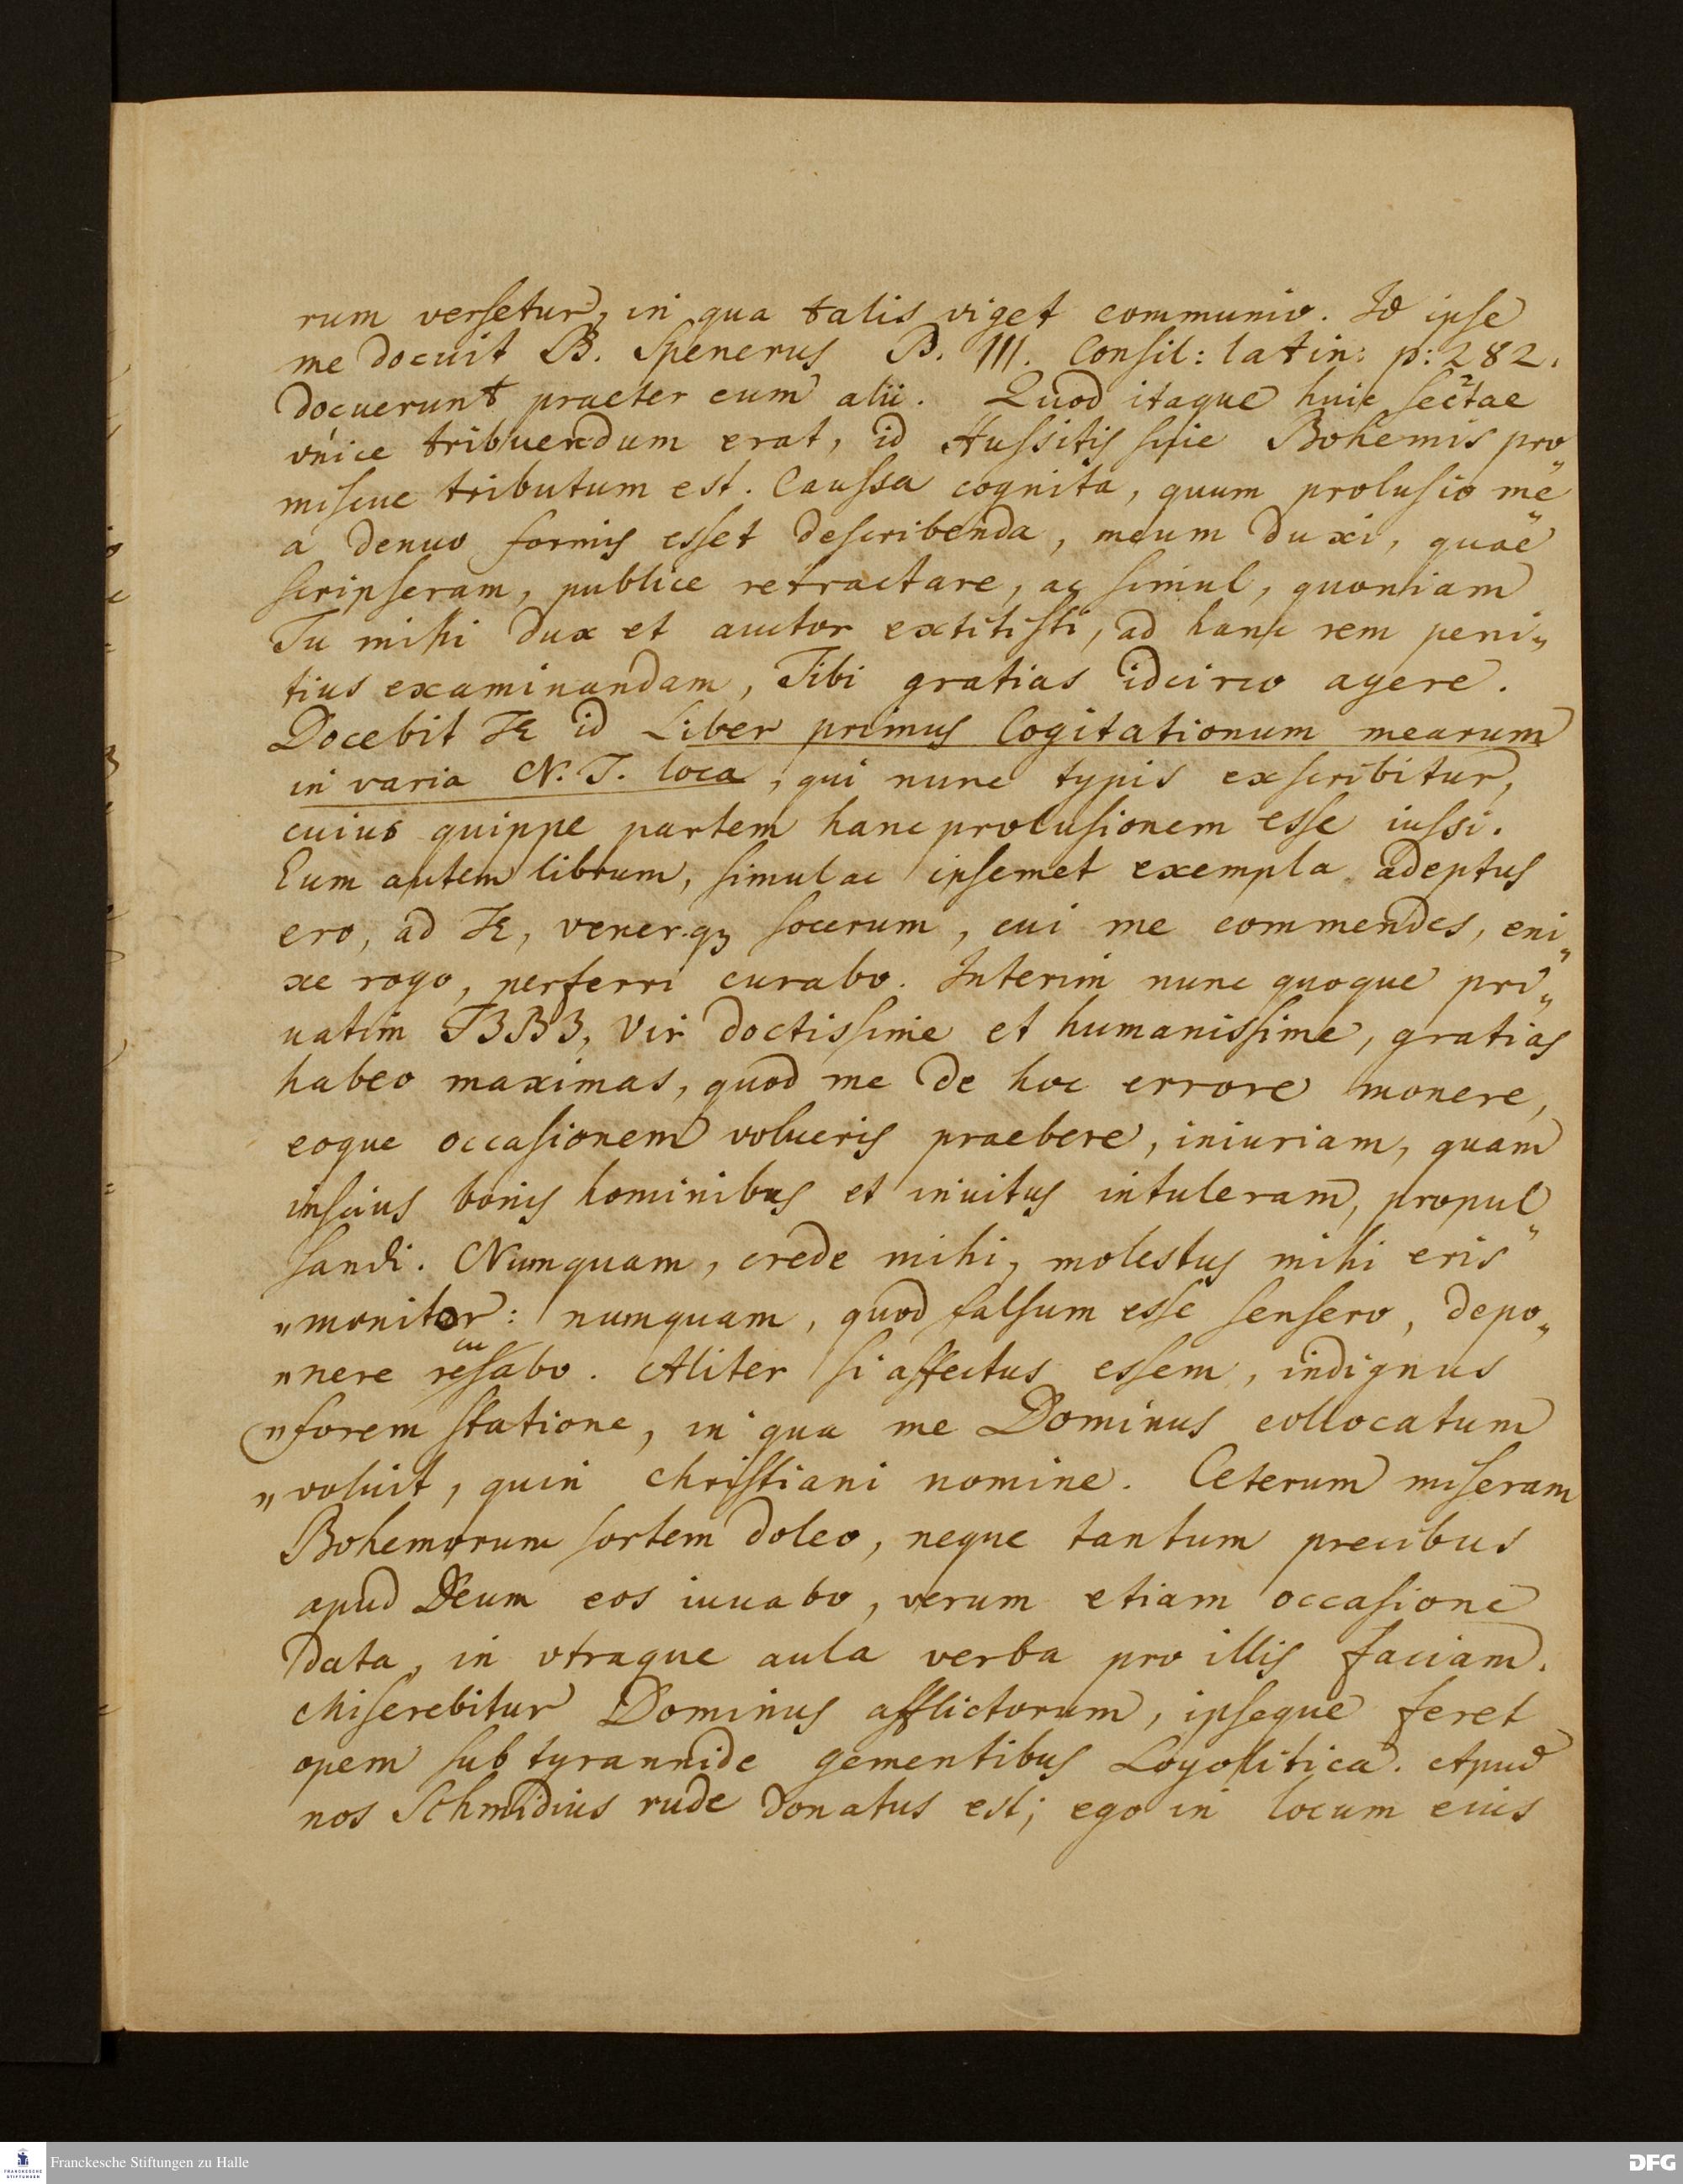 rum versetur, in qua talis viget communio. Id ipse
me docuit B. Spenerus P. III. Consil: latin: p: 282.
docuerunt praeter eum alii. Quod itaque huic sectae
vnice tribuendum erat, id Hussitis siue Bohemis pro„
miscue tributum est. Caussa cognita, quum prolusio me„
a denuo formis esset describenda, meum duxi, quae„
scripseram, publice retractare, ac simul, quoniam
Tu mihi dux et auctor extitisti, ad hanc rem peni„
tius examinandam, Tibi gratias idcirco agere.
Docebit Te id Liber primus Cogitationum mearum
in varia N. T. loca, qui nunc typis exscribitur,
cuius quippe partem hanc prolusionem esse iussi.
Eum autem librum, simulac ipsemet exempla adeptus
ero, ad Te, vener.qz socerum, cui me commendes, eni„
xe rogo, perferri curabo. Interim nunc quoque pri„
uatim Vir doctissime et humanissime, gratias
habeo maximas, quod me de hoc errore monere,
eoque occasionem volueris praebere, iniuriam, quam
inscius bonis hominibus et inuitus intuleram, propul„
sandi. Numquam, crede mihi, molestus mihi eris
„monitor: numquam, quod falsum esse sensero, depo„
„nere recusabo. Aliter si affectus essem, indignus
„forem statione, in qua me Dominus collocatum
„voluit, quin christiani nomine. Ceterum miseram
Bohemorum sortem doleo, neque tantum precibus
apud Deum eos iuuabo, verum etiam occasione
data, in vtraque aula verba pro illis faciam.
Miserebitur Dominus afflictorum, ipseque feret
opem sub tyrannide gementibus Loyolitica. Apud
nos Schmidius rude donatus est; ego in locum eius
Franckesche Stiftungen zu Halle
FRANCKESCHE STIFTUNGEN
DFG